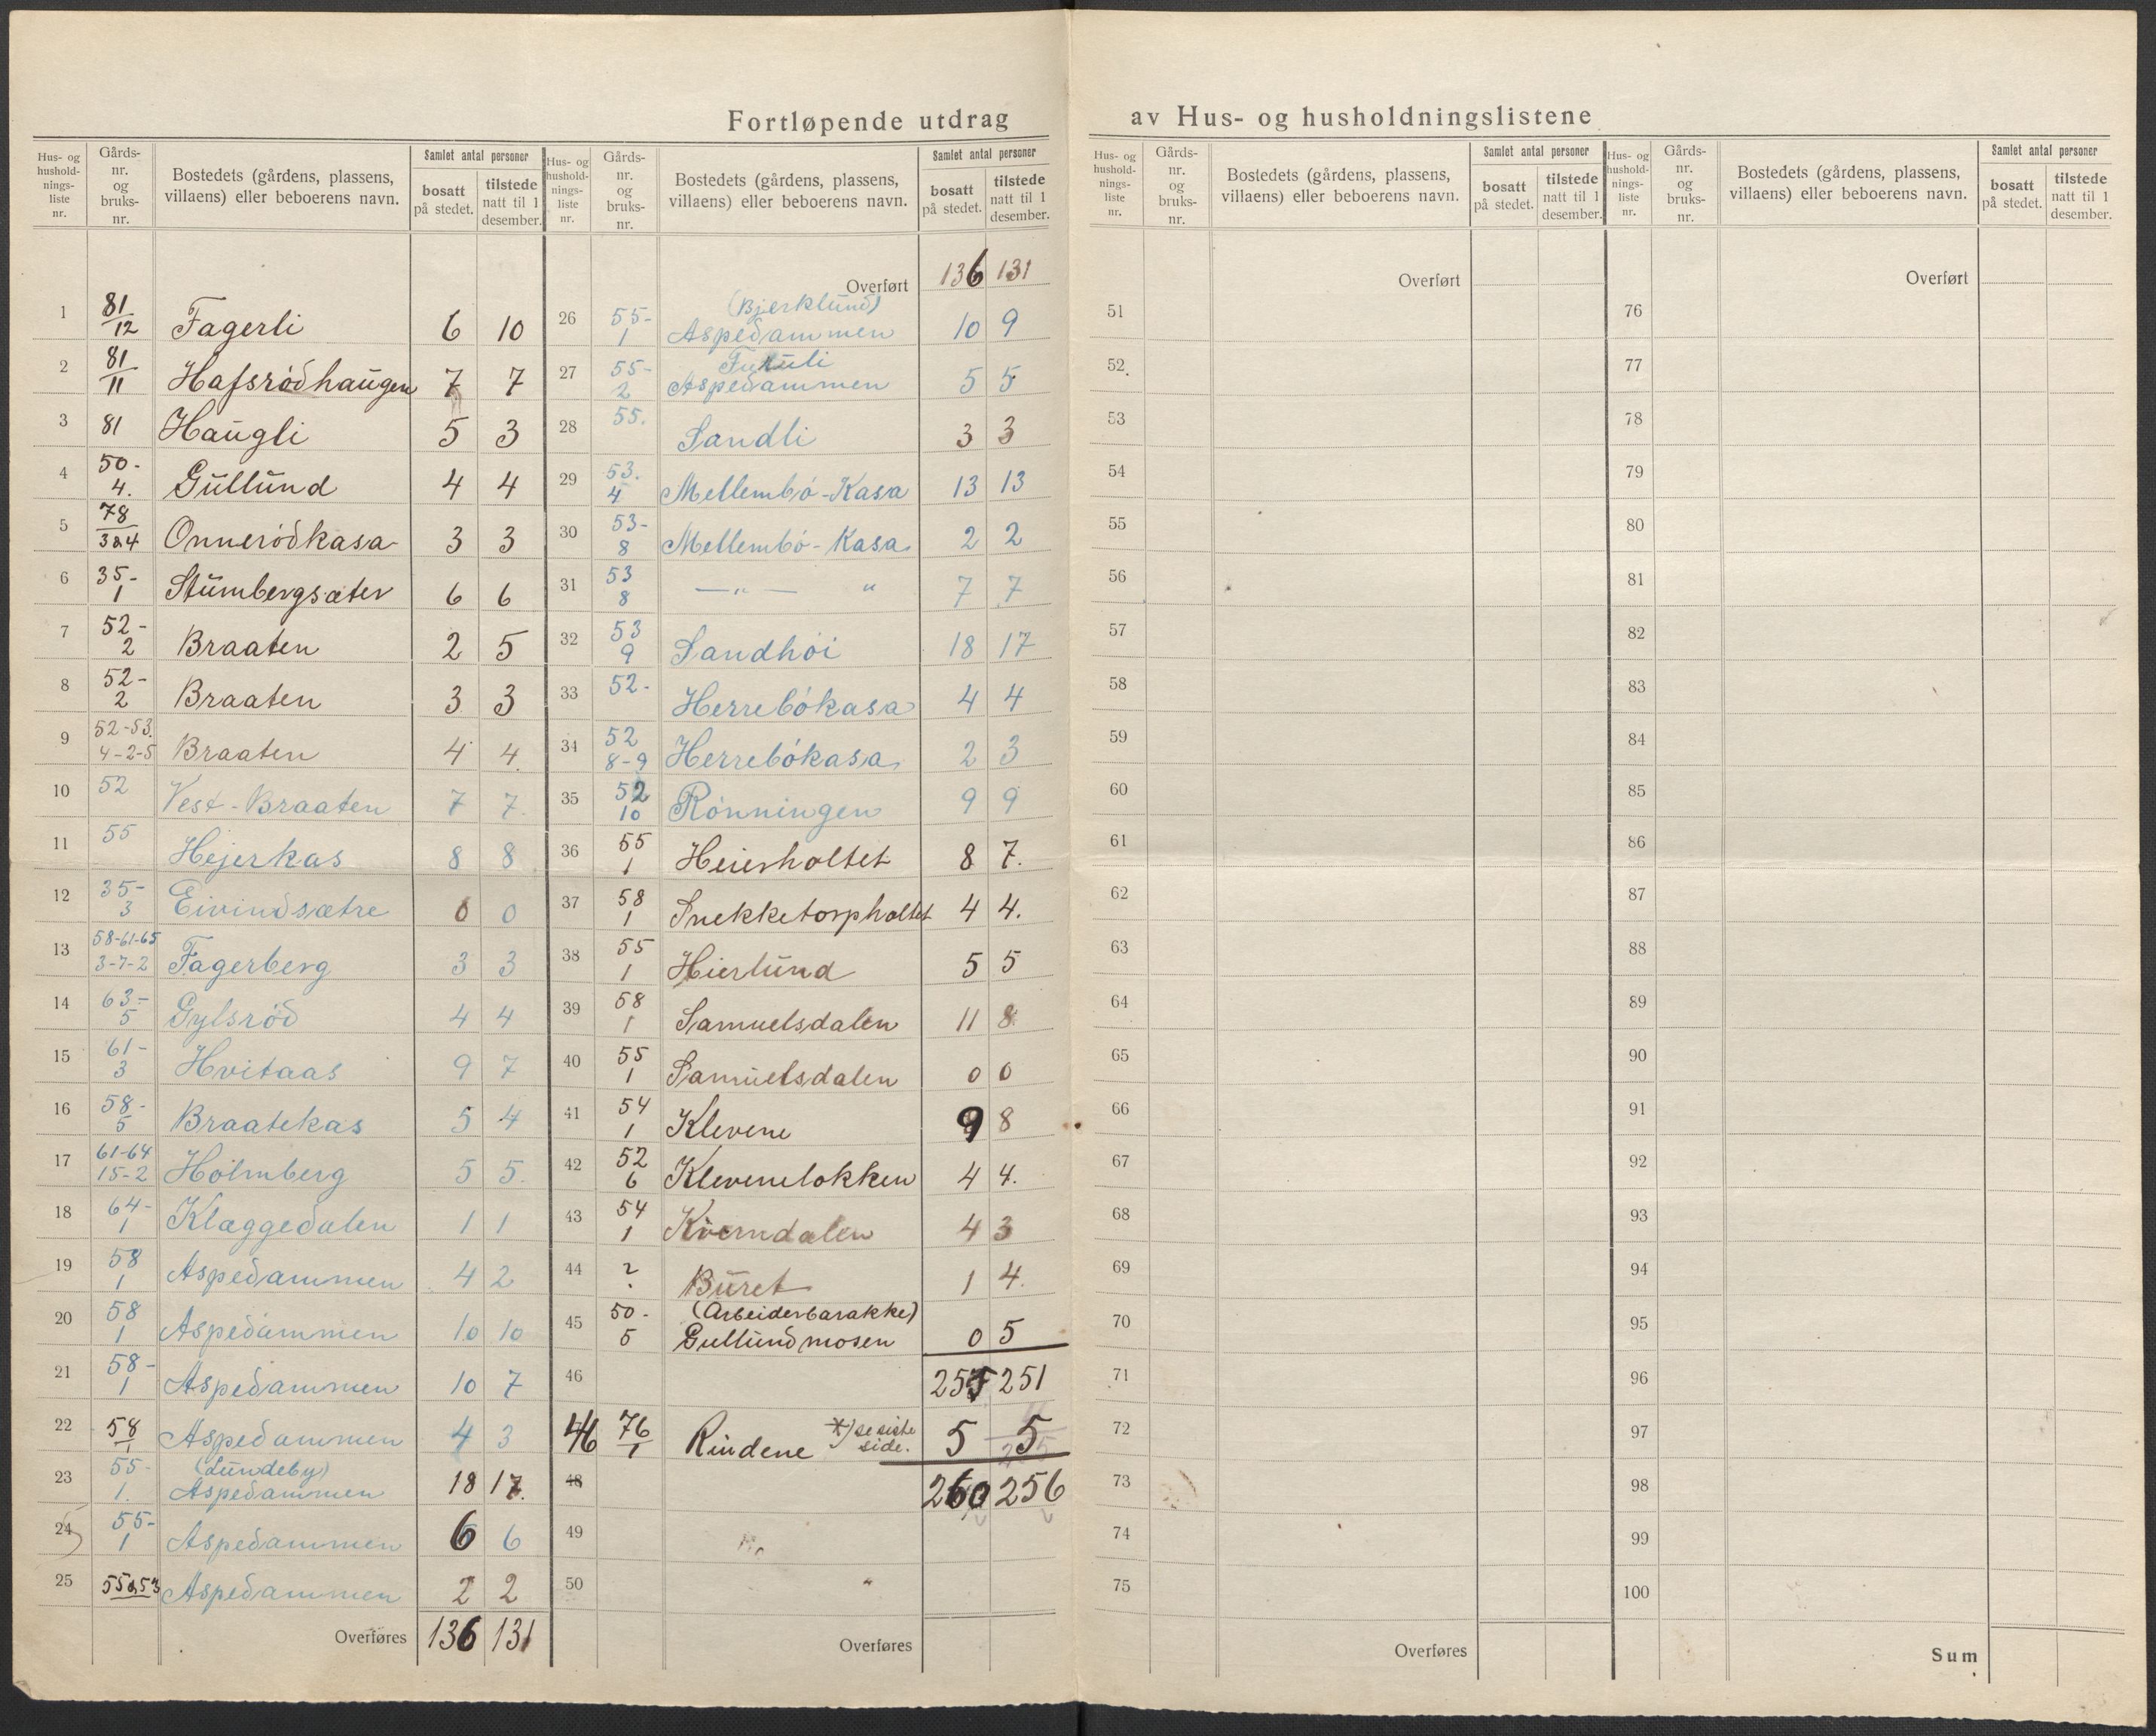 Fortløpende utdrag av Hus- og husholdningslistene
Hus- og husholdnings-liste nr. Gårds-nr. og bruks-nr. Bostedets (gårdens, plassens, villaens) eller beboerens navn. Samlet antal personer bosatt på stedet. tilstede natt til 1 desember.
1 81/12 Fagerli 6 10
2 81/11 Hafsrødhaugen 7 7
3 81 Haugli 5 3
4 50-4. Gullund 4 4
5 78/3&4 Onnerödkasa 3 3
6 35-1 Stumbergsæter 6 6
7 52-2 Braaten 2 5
8 52-2 Braaten 3 3
9 52-53. 4-2-5 Braaten 4 4
10 52 Vest-Braaten 7 7.
11 55 Hejerkas 8 8
12 35-3 Eivindsætre 0 0
13 58-61-65 3-7-2 Fagerberg 3 3
14 63-5 Gylsröd 4 4
15 61-3 Hvitaas 9 7
16 58-5 Braatekas 5 4
17 61-64 15-2 Holmberg 5 5.
18 64-1 Klæggedalen 1 1
19 58 1 Aspedammen 4 2
20 58 1 Aspedammen 10 10
21 58-1 Aspedammen 10 7
22 58/1 Aspedammen 4 3
23 55-1. (Lundeby) Aspedammen 18 17.
24 55-1 Aspedammen 6 6
25 55&53 Aspedammen 2 2
Overføres 136 131
Hus- og husholdnings-liste nr. Gårds-nr. og bruks-nr. Bostedets (gårdens, plassens, villaens) eller beboerens navn. Samlet antal personer bosatt på stedet. tilstede natt til 1 desember.
Overført 136 131
26 55-1 (Bjerklund) Aspedammen 10 9
27 55-2 Furuli Aspedammen 5 5
28 55. Sandli 3 3
29 53. 4 Mellembö-Kasa 13 13
30 53-8 Mellembö-Kasa 2 2
31 53 8 —"— " 7 7
32 53 9 Sandhöi 18 17
33 52- Herrebökasa 4 4
34 52 8-9 Herrebökasa 2 3
35 52 10 Rönningen 9 9
36 55 1 Heierholtet 8 7.
37 58 1 Snekketorpholtet 4 4.
38 55 1 Hierlund 5 5
39 58 1 Samuelsdalen 11 8
40 55 1 Samuelsdalen 0 0
41 54 1 Klevene 9 8
42 52 6 Klevenelökken 4 4.
43 54 1 Kverndalen 4 3
44 ? Buret 1 4.
45 50-5 (Arbeiderbarakke) Gullundmosen 0 5
46 255 251
46 76/1 Rindene *) se siste side. 5 5
48 260 256
49
50 "
Overføres
Hus- og husholdnings-liste nr. Gårds-nr. og bruks-nr. Bostedets (gårdens, plassens, villaens) eller beboerens navn. Samlet antal personer bosatt på stedet. tilstede natt til 1 desember.
Overført
51
52
53
54
55
56
57
58
59
60
61
62
63
64
65
66
67
68
69
70
71
72
73
74
75
Overføres
Hus- og husholdnings-liste nr. Gårds-nr. og bruks-nr. Bostedets (gårdens, plassens, villaens) eller beboerens navn. Samlet antal personer bosatt på stedet. tilstede natt til 1 desember.
Overført
76
77
78
79
80
81
82
83
84
85
86
87
88
89
90
91
92
93
94
95
96
97
98
99
100
Sum